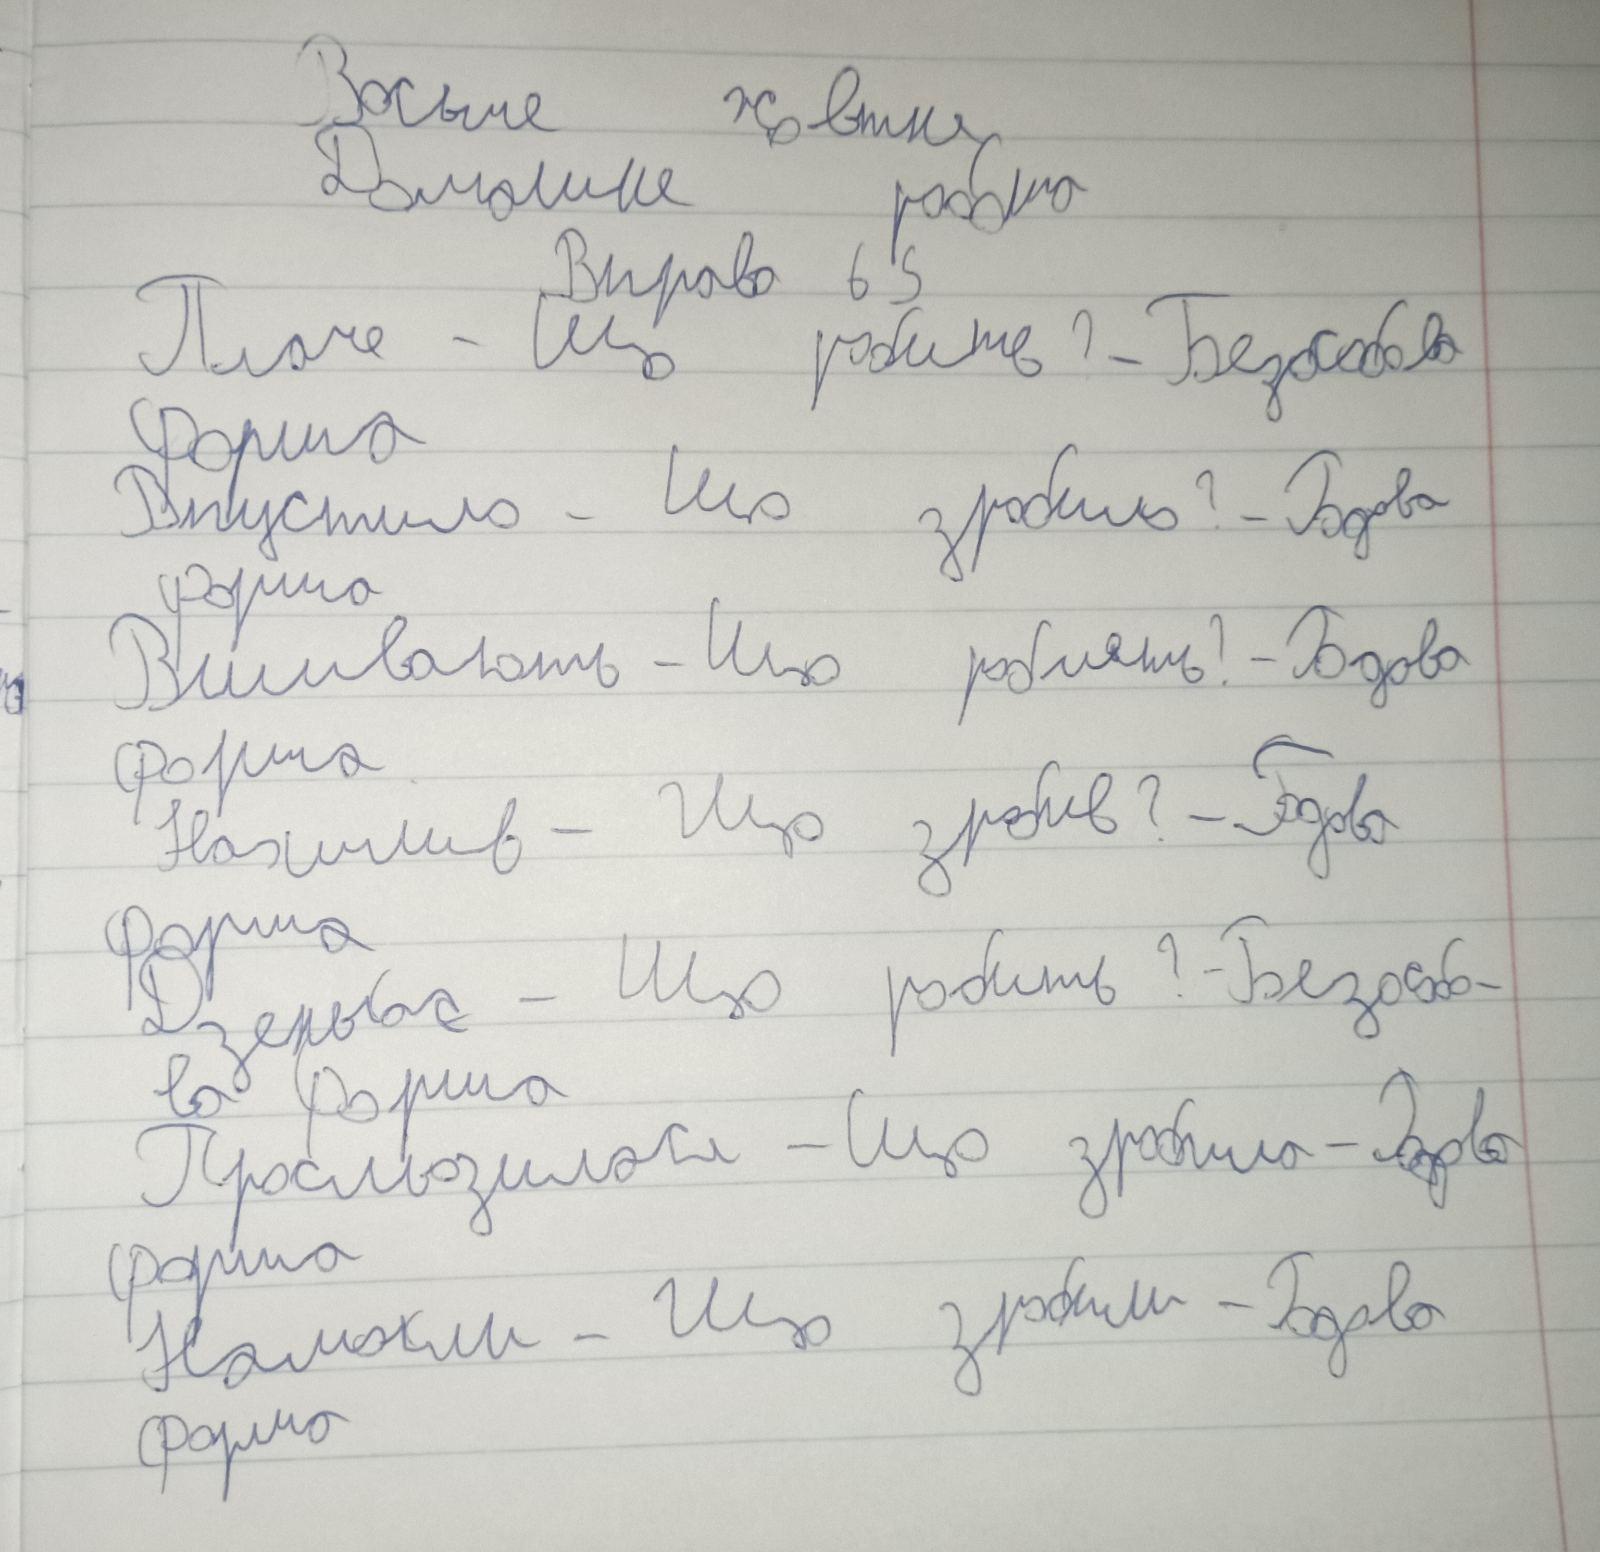 Восьме жовтня
Домашня робота
Вправа 65
Плаче - Що робить? - Безособова
форма
Впустило - Що зробило? - Бдова
форма
Вишивають - Що роблять? - Бдова
форма
Нахилив - Що зробив? - Бдова
форма
Дзеркає - Що робить? - Безособо-
ва форма
Прослизилася - Що зробила - Бдова
форма
Намокли - Що зробили - Бдова
форма